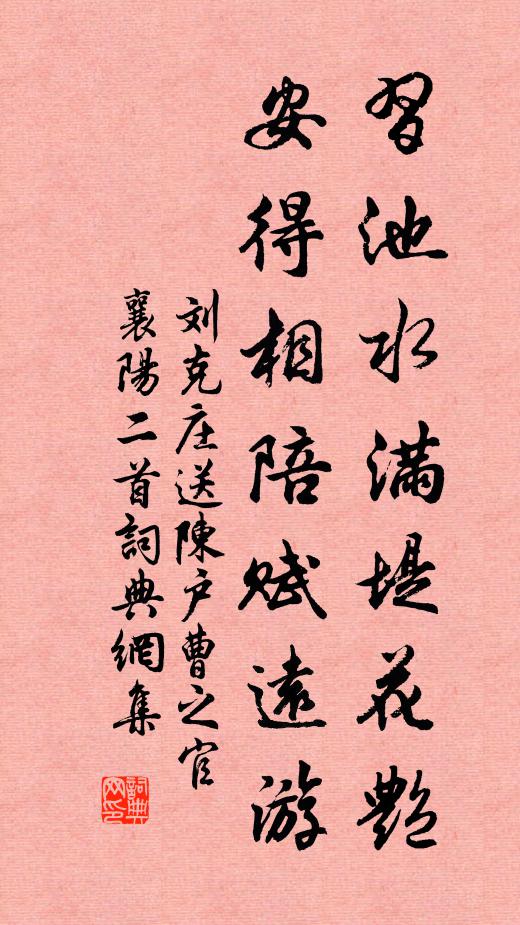 習池水满堤花艶
安得相陪赋遠游
刘克庄送陳户曹之官
襄陽二首詞典網集
詞典
网印